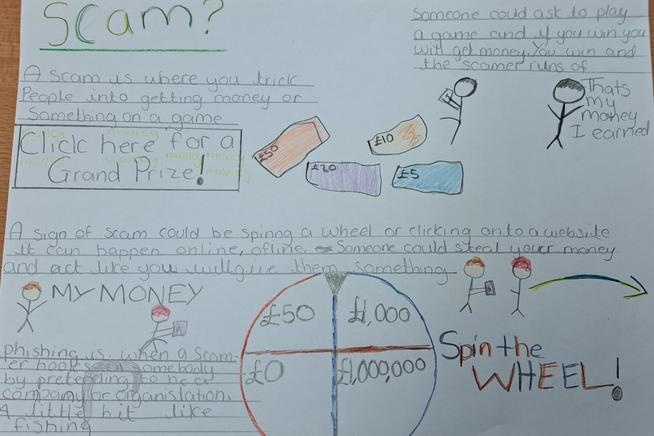 Scam?
Someone could ask to play
a game and if you win you
will get money. You win and
the scamer runs of
A scam is where you trick
People into getting money or
Something on a game
Click here for a
Grand Prize!
money money
money money money money
money
£50
£10
£20
£5
Thats
my
money
I earned
A sign of scam could be spinng a wheel or clicking onto a website
it can happen online, ofline. Someone could steal your money
and act like you will give them something
MY MONEY
£50
£1,000
£0
£1,000,000
Spin the
WHEEL!
phishing is when a scam-
er hooks somebody
by pretending to be a
company or organistation.
A little bit like
fishing